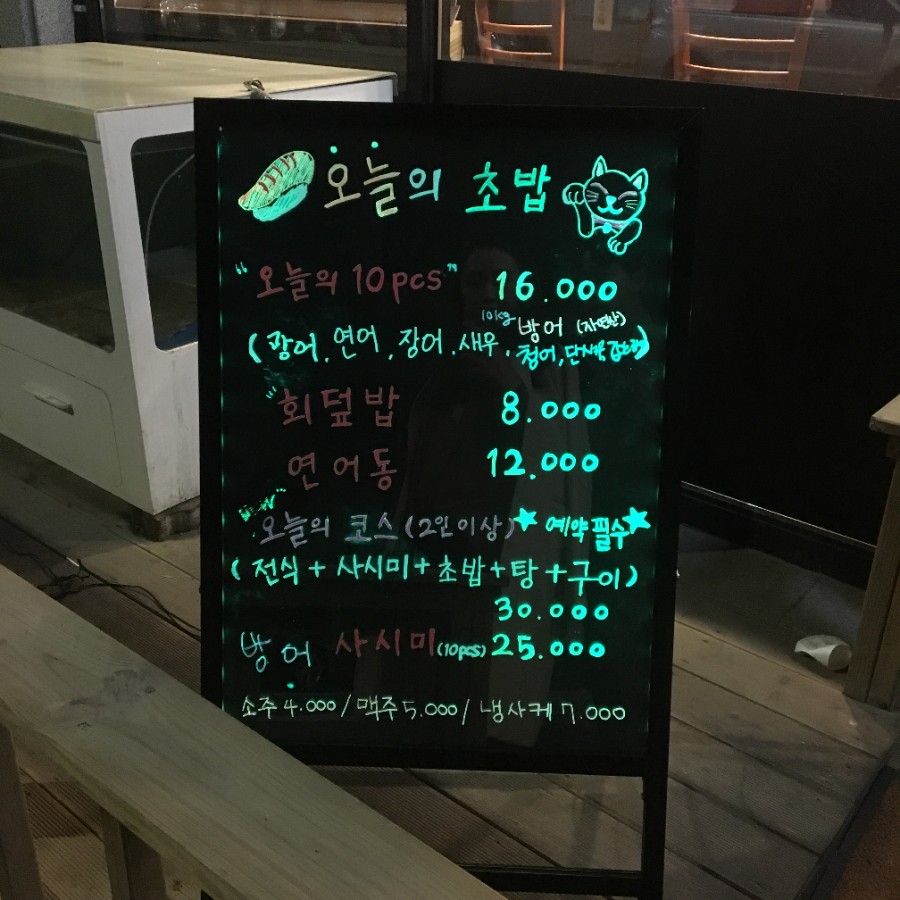 오늘의 초밥
"오늘의 10pcs" 16.000
10kg 방어 (자연산)
(광어, 연어, 장어, 새우, 청어, 단새우
회덮밥 8.000
연어동 12.000
"NEW"
오늘의 코스 (2인이상) 예약 필수
(전식 + 사시미 + 초밥 + 탕 + 구이)
30.000
방어 사시미 (10pcs) 25.000
소주 4.000 / 맥주 5.000 / 냉사케 7.000